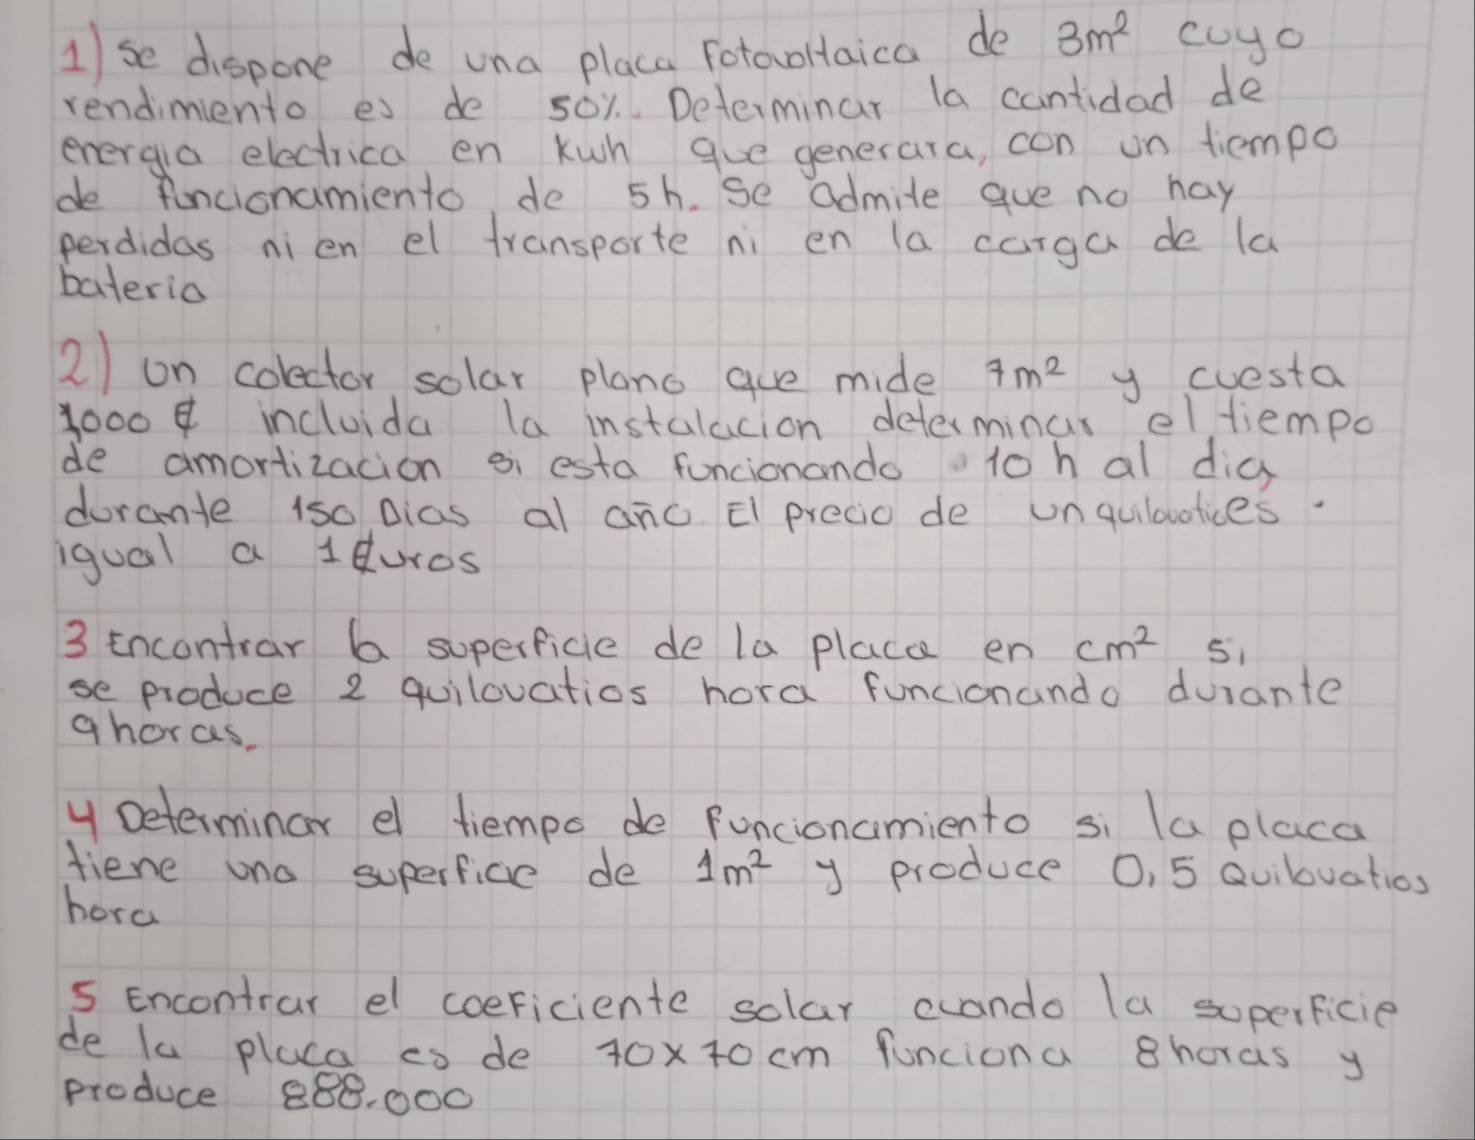 1) se dispone de una placa Fotovoltaica de 3m² cuyo
rendimiento es de 50%. Determinar la cantidad de
energia electrica en kwh que generara, con un tiempo
de funcionamiento de 5h. Se admite que no hay
perdidas ni en el transporte ni en la carga de la
bateria
2) un colector solar plano que mide 7m² y cuesta
1000 € incluida la instalacion determinar el tiempo
de amortizacion si esta funcionando 10 h al dia
durante 150 Dias al año El precio de un
igual a 1 €uros
3 Encontrar la superficie de la placa en cm² si
se produce 2 quilovatios hora funcionando durante
9horas.
4 Determinar el tiempo de funcionamiento si la placa
tiene una superficie de 1m² y produce 0,5 Quilovatios
hora
5 Encontrar el coeficiente solar cuando la superficie
de la placa es de 70x70cm funciona 8horas y
produce 888.000